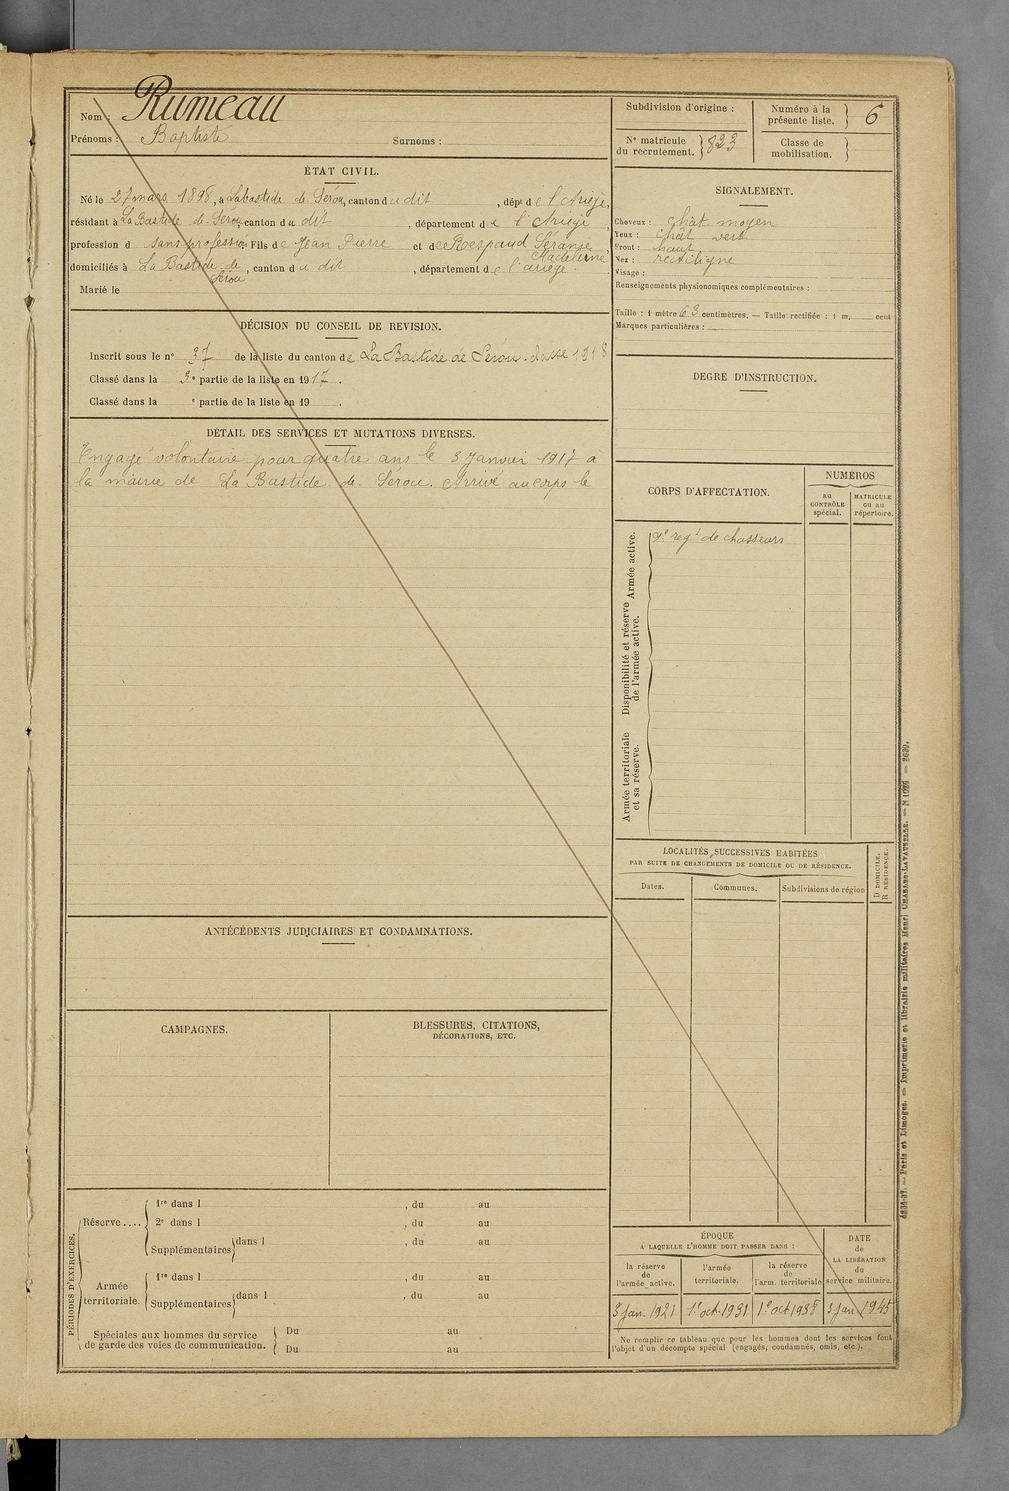 Nom : Rumeau
Prénoms : Baptiste Surnoms :
ÉTAT CIVIL.
Né le 27 mars 1898, à Labastide de Sérou, canton du dit, dépt de l'Ariège,
résidant à La Bastide de Sérou, canton du dit, département de l'Ariège,
profession d sans profession Fils de Jean Pierre et de Sérange
Madeleine
domiciliés à La Bastide de Sérou, canton du dit, département de l'ariège.
Marié le
DÉCISION DU CONSEIL DE REVISION.
Inscrit sous le n° 37 de la liste du canton de La Bastide de Sérou. classe 1918
Classé dans la 3e partie de la liste en 1917.
Classé dans la e partie de la liste en 19 .
DÉTAIL DES SERVICES ET MUTATIONS DIVERSES.
Engagé volontaire pour quatre ans le 3 Janvier 1917 à
la mairie de La Bastide de Sérou. Arrivé au corps le
ANTÉCÉDENTS JUDICIAIRES ET CONDAMNATIONS.
CAMPAGNES.
BLESSURES, CITATIONS,
DÉCORATIONS, ETC.
PÉRIODES D'EXERCICES.
Réserve....
1re dans l , du au
2e dans l , du au
Supplémentaires dans l , du au
Armée
territoriale.
1re dans l , du au
Supplémentaires dans l , du au
Spéciales aux hommes du service
de garde des voies de communication.
Du au
Du au
Subdivision d'origine :
Numéro à la
présente liste. 6
N° matricule
du recrutement. 823
Classe de
mobilisation.
SIGNALEMENT.
Cheveux : chât moyen
Yeux : chât vert
Front : haut
Nez : rectiligne
Visage :
Renseignements physionomiques complémentaires :
Taille : 1 mètre 63 centimètres. — Taille rectifiée : 1 m. cent
Marques particulières :
DEGRÉ D'INSTRUCTION.
CORPS D'AFFECTATION.
NUMÉROS
au
CONTRÔLE
spécial.
MATRICULE
ou au
répertoire.
Armée active.
9e regt de chasseurs
Disponibilité et réserve
de l'armée active.
Armée territoriale
et sa réserve.
LOCALITÉS SUCCESSIVES HABITÉES
PAR SUITE DE CHANGEMENTS DE DOMICILE OU DE RÉSIDENCE.
Dates.
Communes.
Subdivisions de région
D DOMICILE.
R RÉSIDENCE.
ÉPOQUE
A LAQUELLE L'HOMME DOIT PASSER DANS :
la réserve
de
l'armée active.
l'armée
territoriale.
la réserve
de
l'arm. territoriale
DATE
de
LA LIBÉRATION
du
service militaire.
3 Jan. 1921
1er oct. 1931
1er oct 1938
3 Jan. 1945
Ne remplir ce tableau que pour les hommes dont les services font
l'objet d'un décompte spécial (engagés, condamnés, omis, etc.).